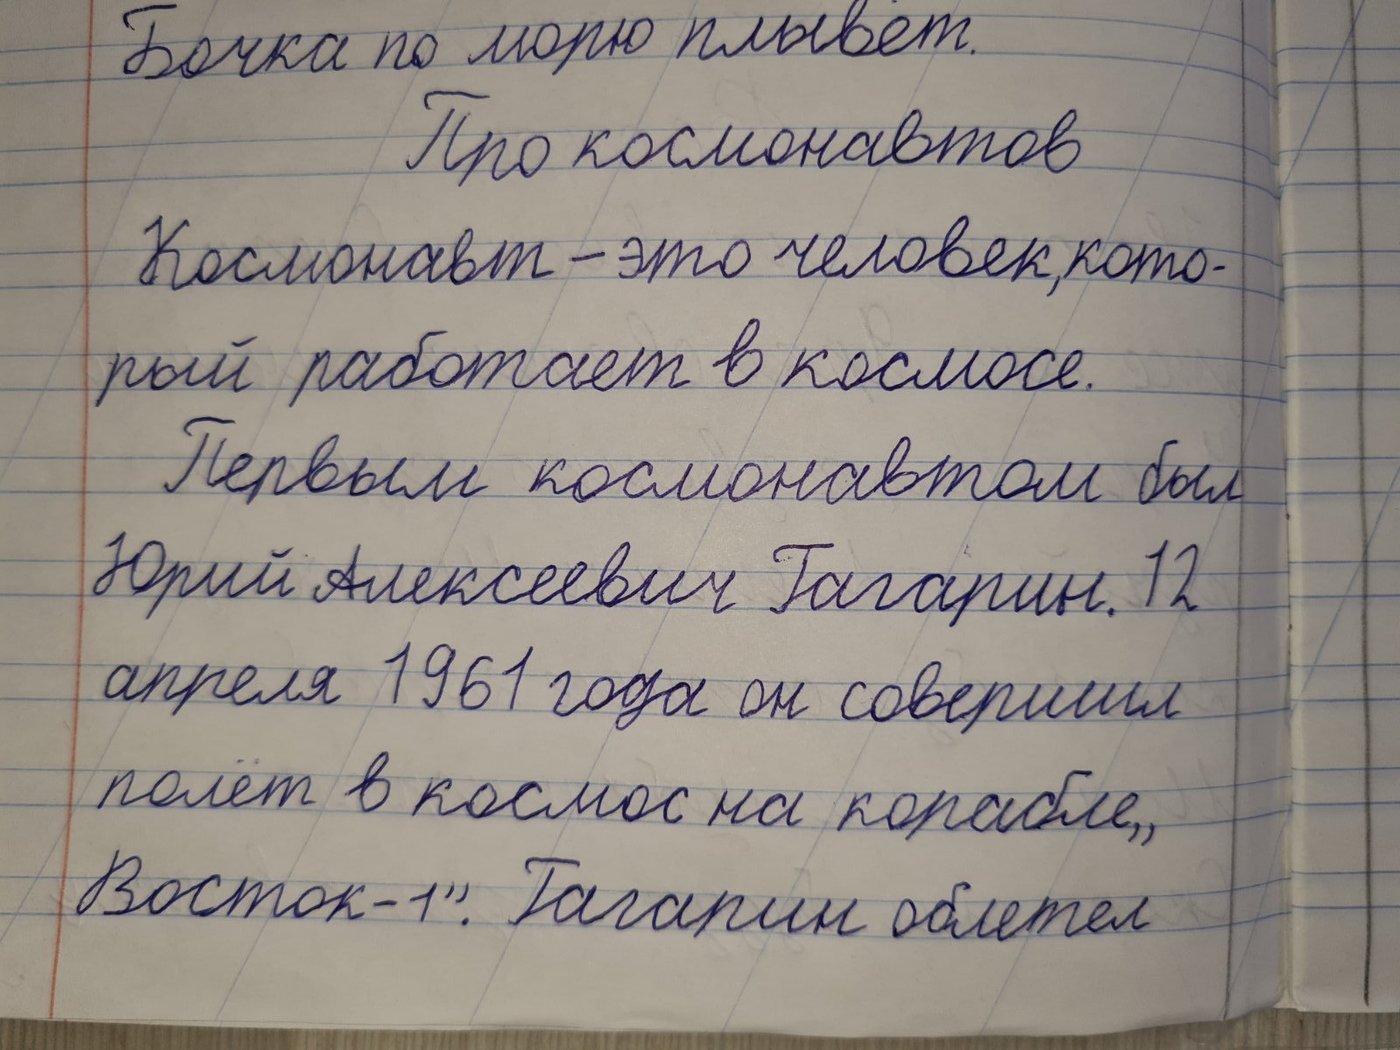 Бочка по морю плывёт.
Про космонавтов
Космонавт – это человек, кото-
рый работает в космосе.
Первым космонавтом был
Юрий Алексеевич Гагарин. 12
апреля 1961 года он совершил
полёт в космос на корабле „
Восток-1”. Гагарин облетел